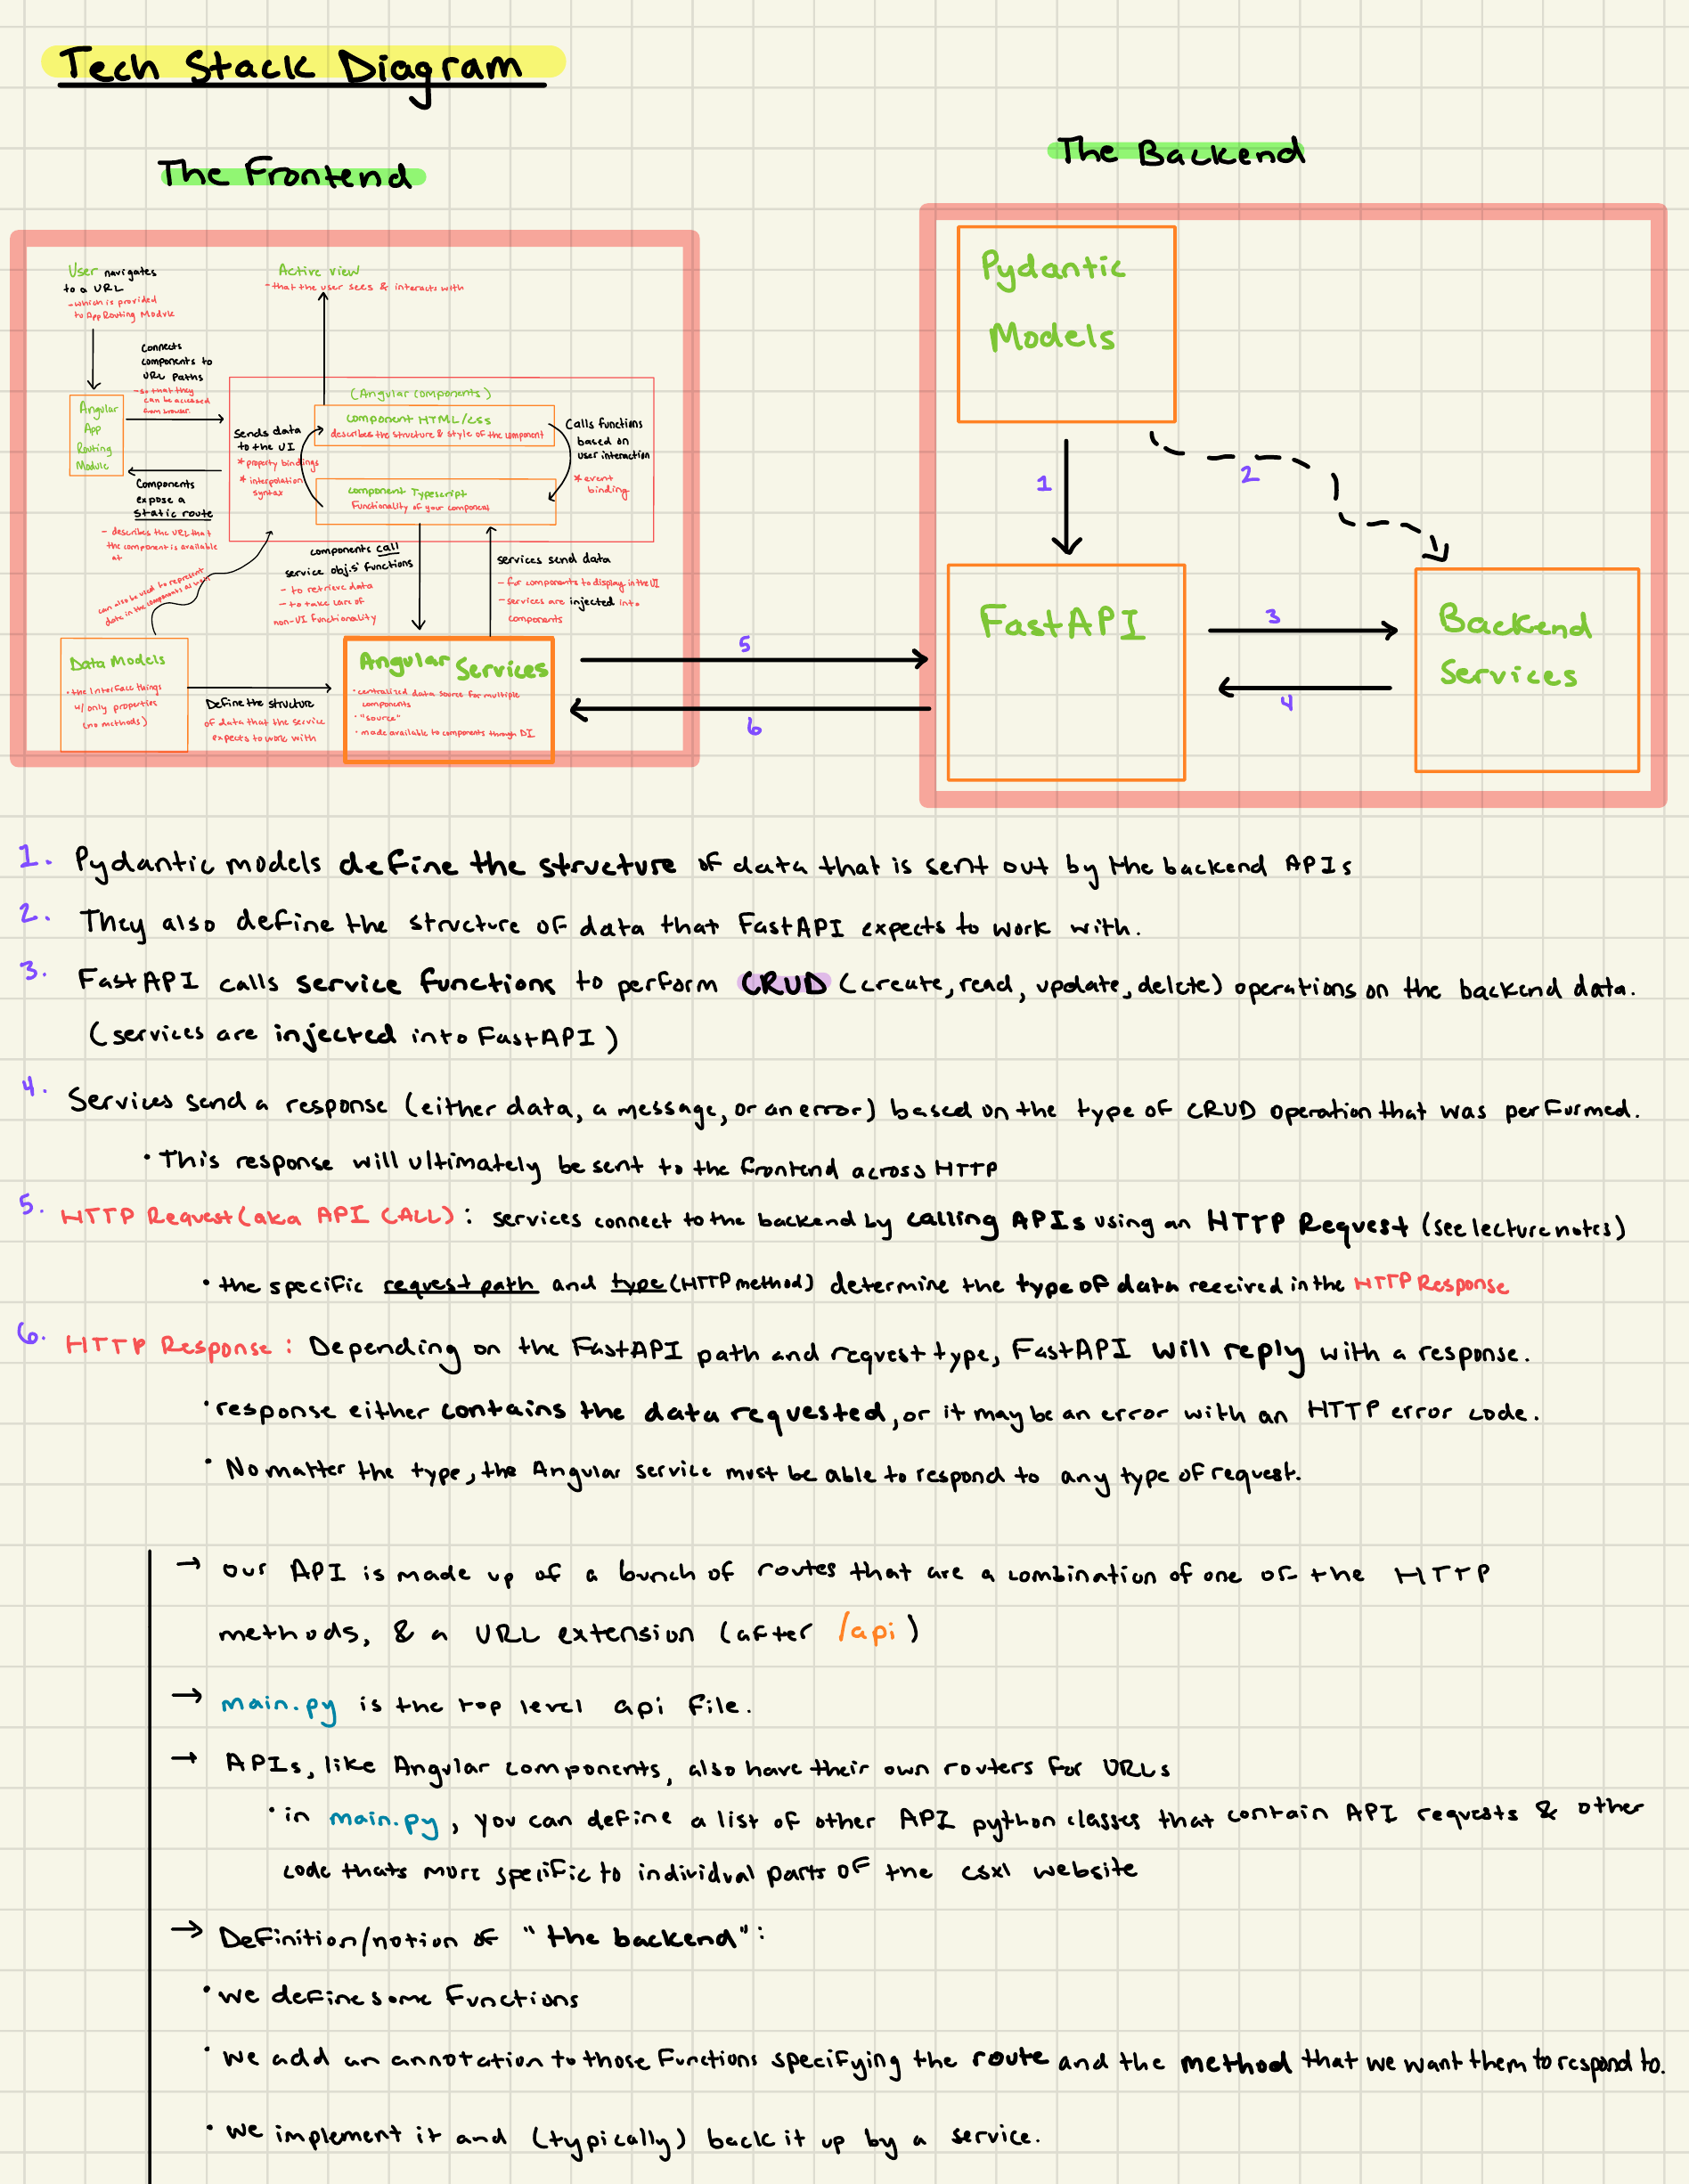 Tech Stack Diagram
The Frontend
The Backend
User navigates
to a URL
- which is provided
to AppRouting Module
Active view
- that the user sees & interacts with
Connects
components to
URL paths
- so that they
can be accessed
from browser
Angular
App
Routing
Module
Components
expose a
static route
- describes the URL that
the component is available
at
(Angular components)
component HTML/CSS
describes the structure & style of the component
Sends data
to the UI
* property bindings
* interpolation
syntax
Calls functions
based on
user interaction
* event
binding
component Typescript
Functionality of your component
can also be used to represent
data in the components as well
components call
service obj.s' functions
- to retrieve data
- to take care of
non-UI functionality
services send data
- for components to display in the UI
- services are injected into
components
Data Models
• the Interface things
w/ only properties
(no methods)
Define the structure
of data that the service
expects to work with
Angular Services
• centralized data source for multiple
components
• "source"
• made available to components through DI
5
6
Pydantic
Models
1
2
FastAPI
3
4
Backend
Services
1. Pydantic models define the structure of data that is sent out by the backend APIs
2. They also define the structure of data that FastAPI expects to work with.
3. FastAPI calls service functions to perform CRUD (create, read, update, delete) operations on the backend data.
(services are injected into FastAPI)
4. Services send a response (either data, a message, or an error) based on the type of CRUD operation that was performed.
• This response will ultimately be sent to the frontend across HTTP
5. HTTP Request (aka API CALL): services connect to the backend by calling APIs using an HTTP Request (see lecture notes)
• the specific request path and type (HTTP method) determine the type of data received in the HTTP Response
6. HTTP Response: Depending on the FastAPI path and request type, FastAPI will reply with a response.
• response either contains the data requested, or it may be an error with an HTTP error code.
• No matter the type, the Angular service must be able to respond to any type of request.
→ our API is made up of a bunch of routes that are a combination of one of the HTTP
methods, & a URL extension (after /api)
→ main.py is the top level api file.
→ APIs, like Angular components, also have their own routers for URLs
• in main.py, you can define a list of other API python classes that contain API requests & other
code thats more specific to individual parts of the csxl website
→ Definition/notion of "the backend":
• we define some functions
• we add an annotation to those functions specifying the route and the method that we want them to respond to.
• we implement it and (typically) back it up by a service.